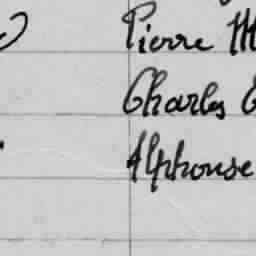 Pierre M
Charles
Alphonse